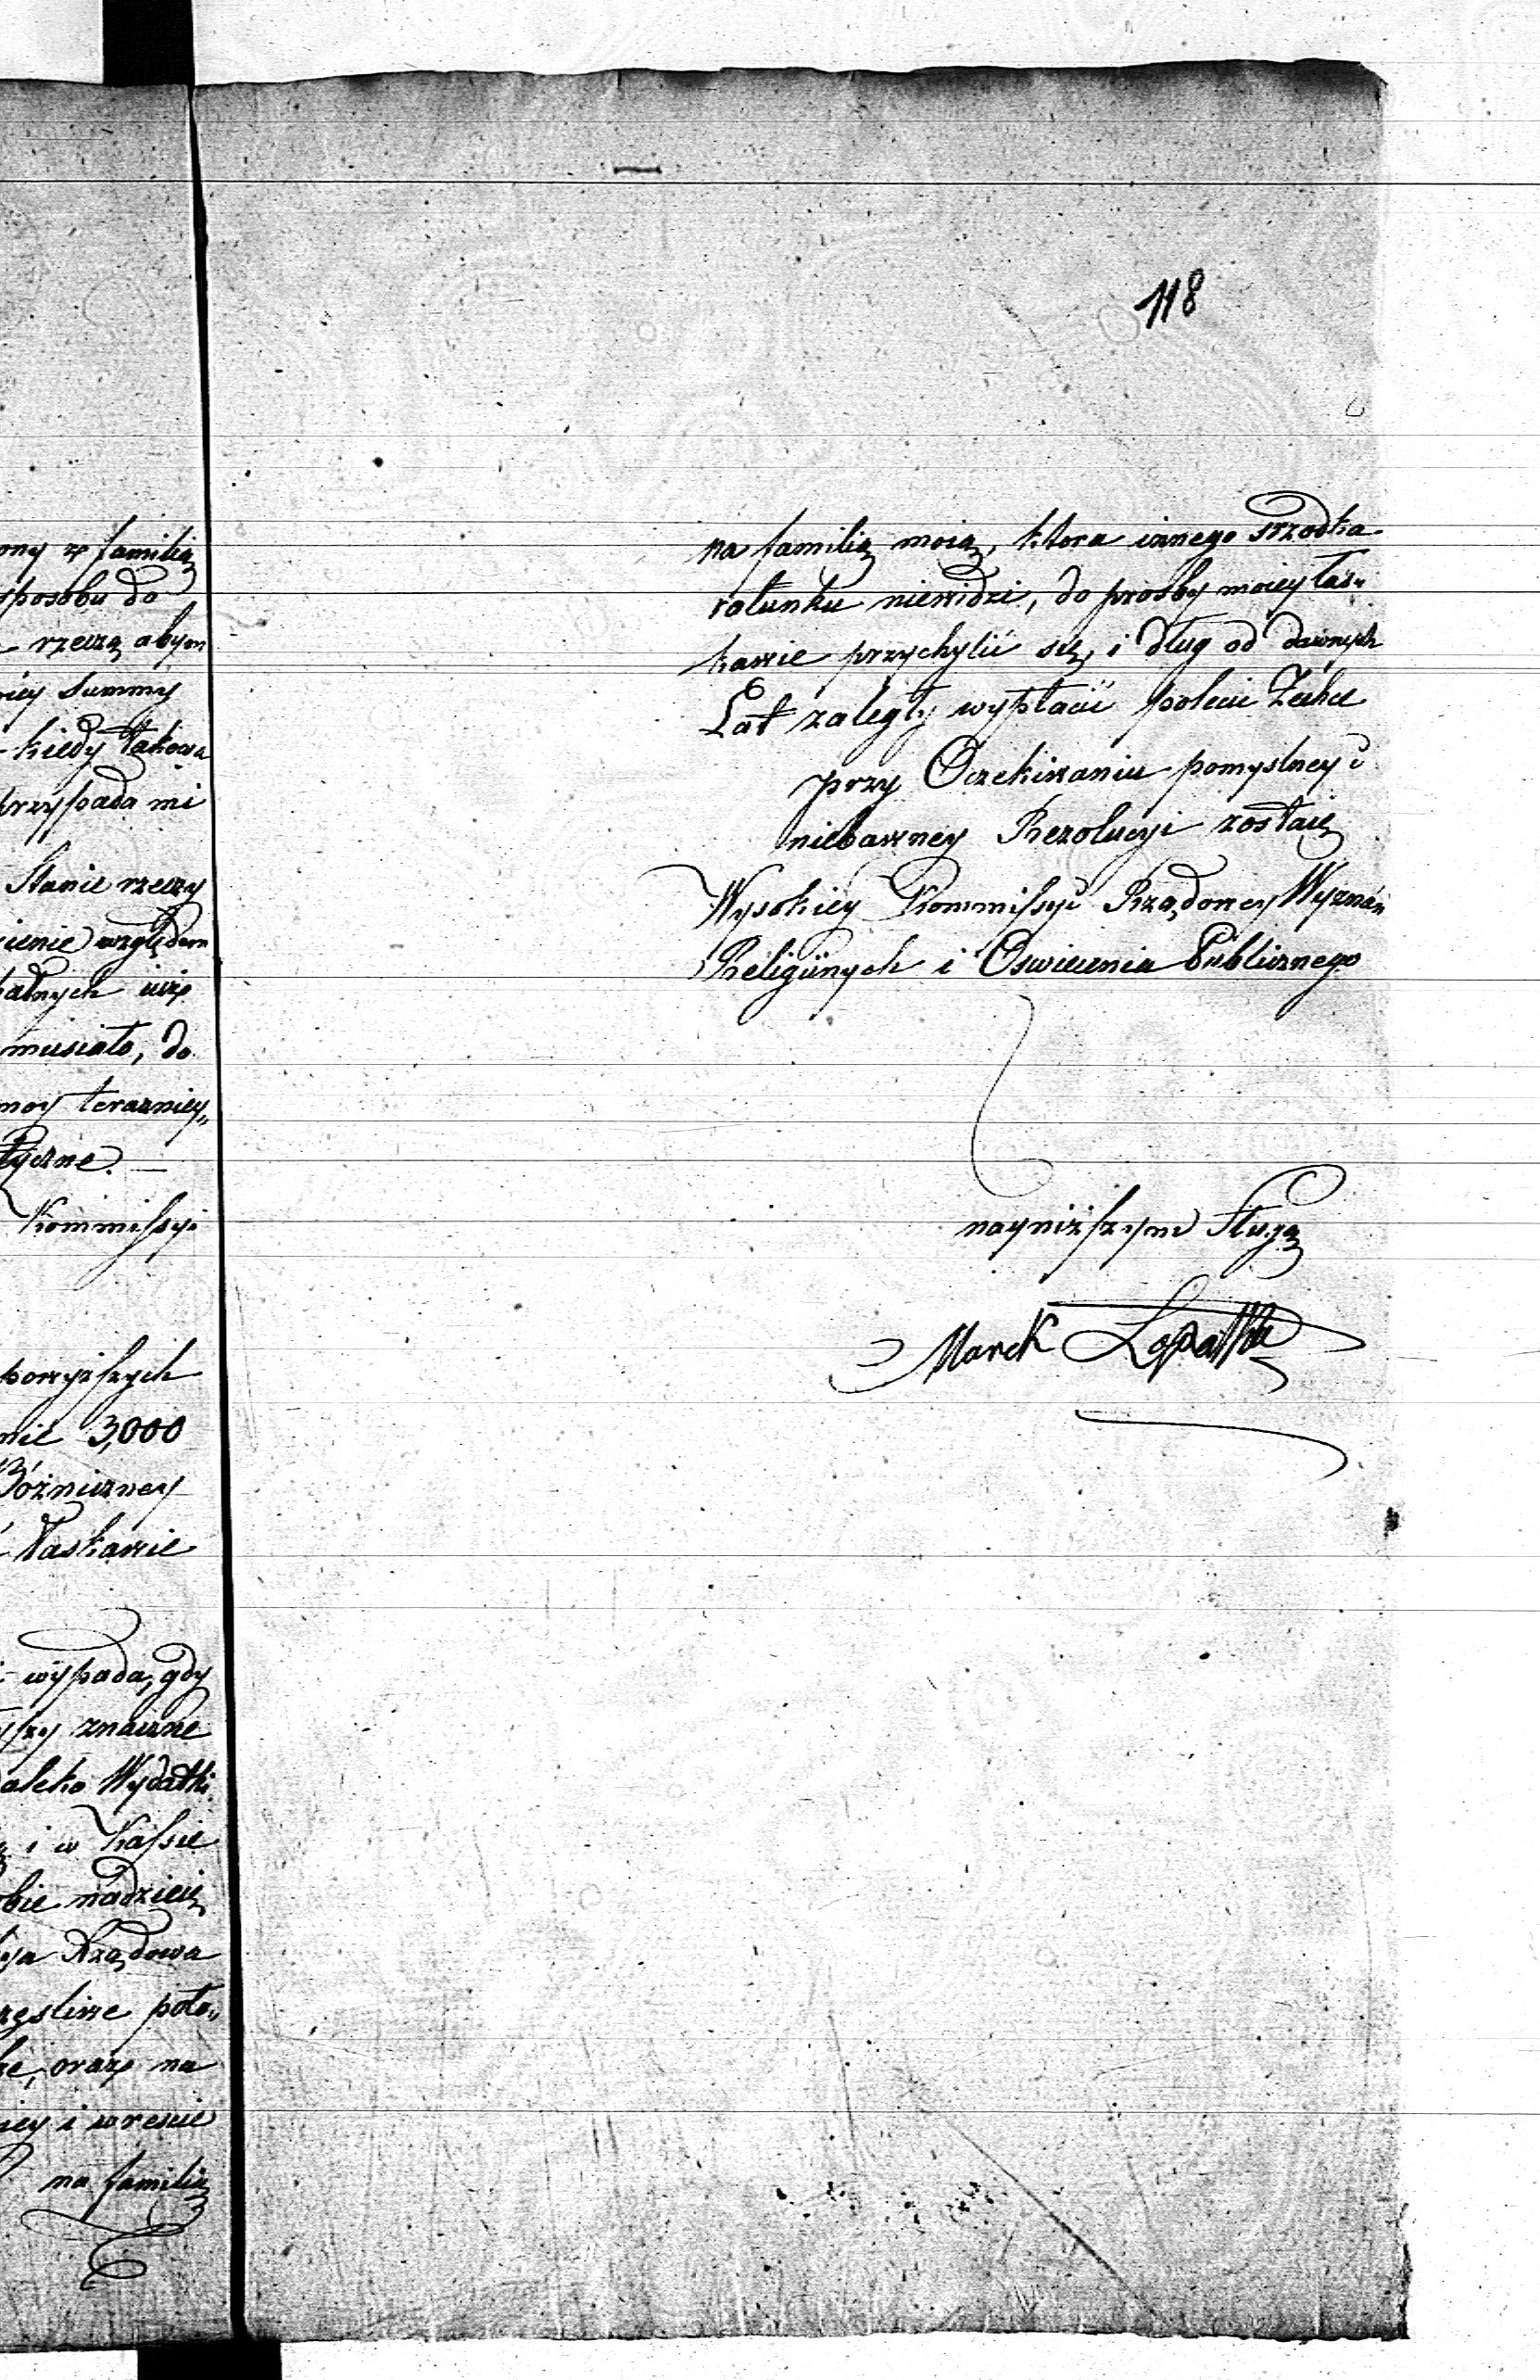 ony z familią
sposobu do
rzeczą abym
iey Summy
kiedy takowa
przypada mi
Stanie rzeczy
ienie względem
musiało, do
moy terazniey„
tyczne. —
Kommissyi
powyższych
nie 3,000
Bóżniczney
łaskawie
wypada, gdy
szy znaczne
aleko Wydatki
i w Kassie
obie nadzieię
ya Rządowa
zęsliwe poło„
ze, oraz na
iey i wrescie
na familią
118
na familią moią, ktora innego srzodka
ratunku niewidzi, do prosby moiey łas„
kawie przychylić się, i dług od dawnych
Lat zaległy wypłacić polecić Zechce
przy Oczekiwaniu pomyslney i
niebawney Rezolucyi zostaię
Wysokiey Kommissyi Rządowey Wyznań
Religiinych i Oswiecenia Publicznego
nayniższym Sługą
Marek Lopatka